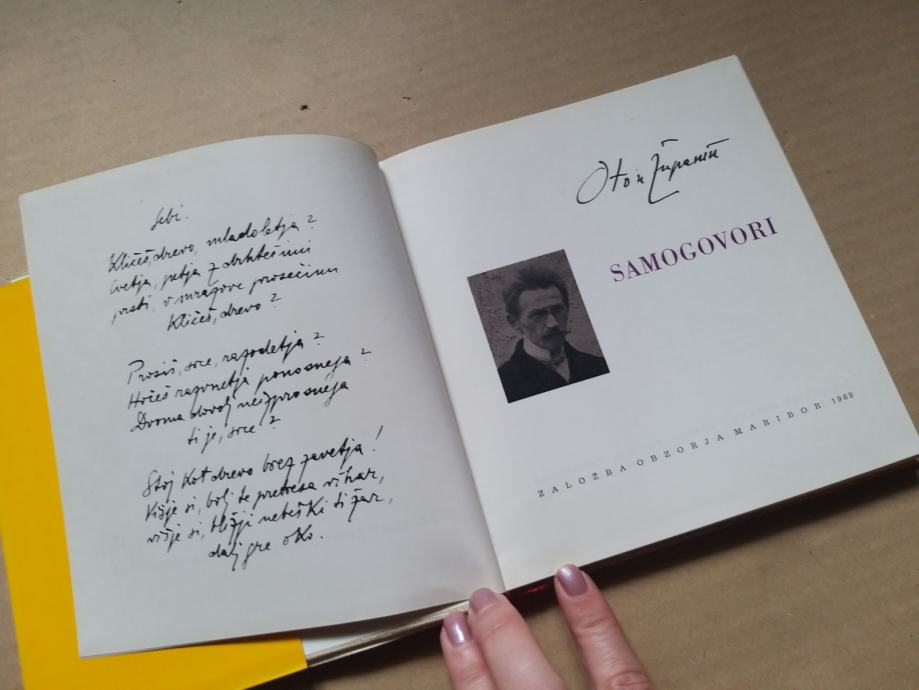 Sebi.
Kličeš, drevo, mladoletja?
Cvetja, petja z drhtečimi
prsti, v mrazove prosečimi
Kličeš, drevo?
Prosiš, srce, razodetja?
Hočeš razvnetja ponosneja?
Dvoma dovolj neizprosneja
ti je, srce?
Stoj kot drevo brez zavetja!
Višje si, bolj te pretresa vihar,
višje si, bližji neteški ti žar,
dalj gre oko.
Oton Župančič
SAMOGOVORI
ZALOŽBA OBZORJA MARIBOR 1969